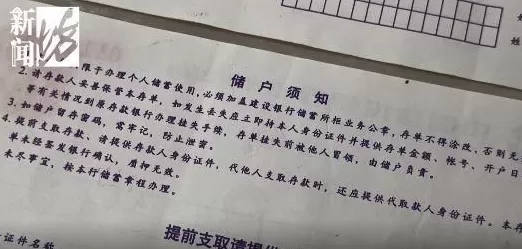 新闻
储户须知
限于办理个人储蓄使用,必须加盖建设银行储蓄所柜业务公章,存单不得涂改,否则无
2.请存款人妥善保管本存单,如发生丢失应立即持本人身份证件并提供存单金额、帐号、开户日
等有关情况到原存款银行办理挂失手续,存单挂失前被他人冒领,由储户负责。
3.如储户留存密码,需牢记,防止泄密。
4.提前支取存款、请提供存款人身份证件,代他人支取存款时,还应提供代取款人身份证件。本存
单未经签发银行确认,质押无效。
未尽事宜,按本行储蓄章程办理。
提前支取请提供
证件名称